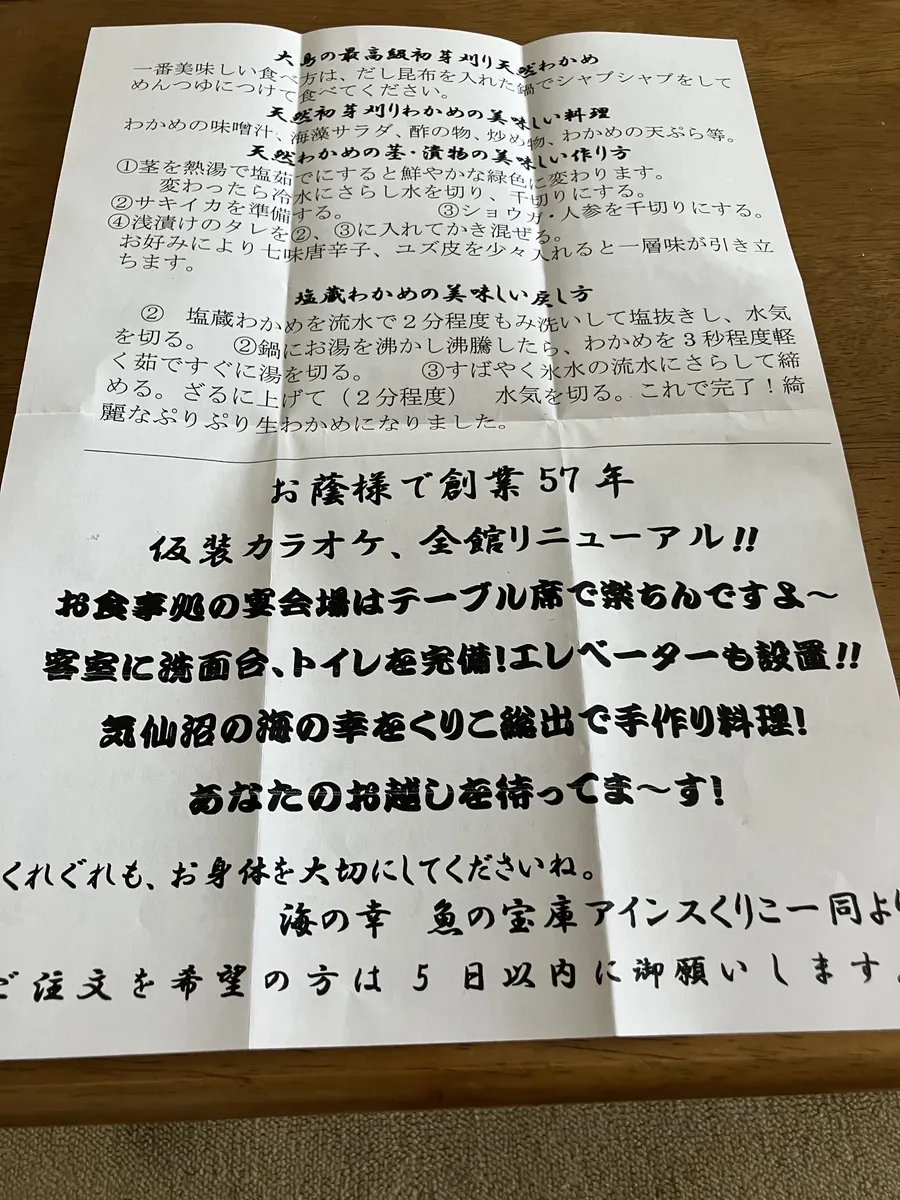 大島の最高級初芽刈り天然わかめ
一番美味しい食べ方は、だし昆布を入れた鍋でシャブシャブをして
めんつゆにつけて食べてください。
天然初芽刈りわかめの美味しい料理
わかめの味噌汁、海藻サラダ、酢の物、炒め物、わかめの天ぷら等。
天然わかめの茎・漬物の美味しい作り方
①茎を熱湯で塩茹でにすると鮮やかな緑色に変わります。
変わったら冷水にさらし水を切り、千切りにする。
②サキイカを準備する。 ③ショウガ・人参を千切りにする。
④浅漬けのタレを②、③に入れてかき混ぜる。
お好みにより七味唐辛子、ユズ皮を少々入れると一層味が引き立
ちます。
塩蔵わかめの美味しい戻し方
② 塩蔵わかめを流水で２分程度もみ洗いして塩抜きし、水気
を切る。 ②鍋にお湯を沸かし沸騰したら、わかめを３秒程度軽
く茹ですぐに湯を切る。 ③すばやく氷水の流水にさらして締
める。ざるに上げて（２分程度） 水気を切る。これで完了！綺
麗なぷりぷり生わかめになりました。
お蔭様で創業57年
仮装カラオケ、全館リニューアル!!
お食事処の宴会場はテーブル席で楽ちんですよ〜
客室に洗面台、トイレを完備!エレベーターも設置!!
気仙沼の海の幸をくりこ総出で手作り料理!
あなたのお越しを待ってま〜す!
くれぐれも、お身体を大切にしてくださいね。
海の幸 魚の宝庫アインスくりこ一同より
ご注文を希望の方は5日以内に御願いします。